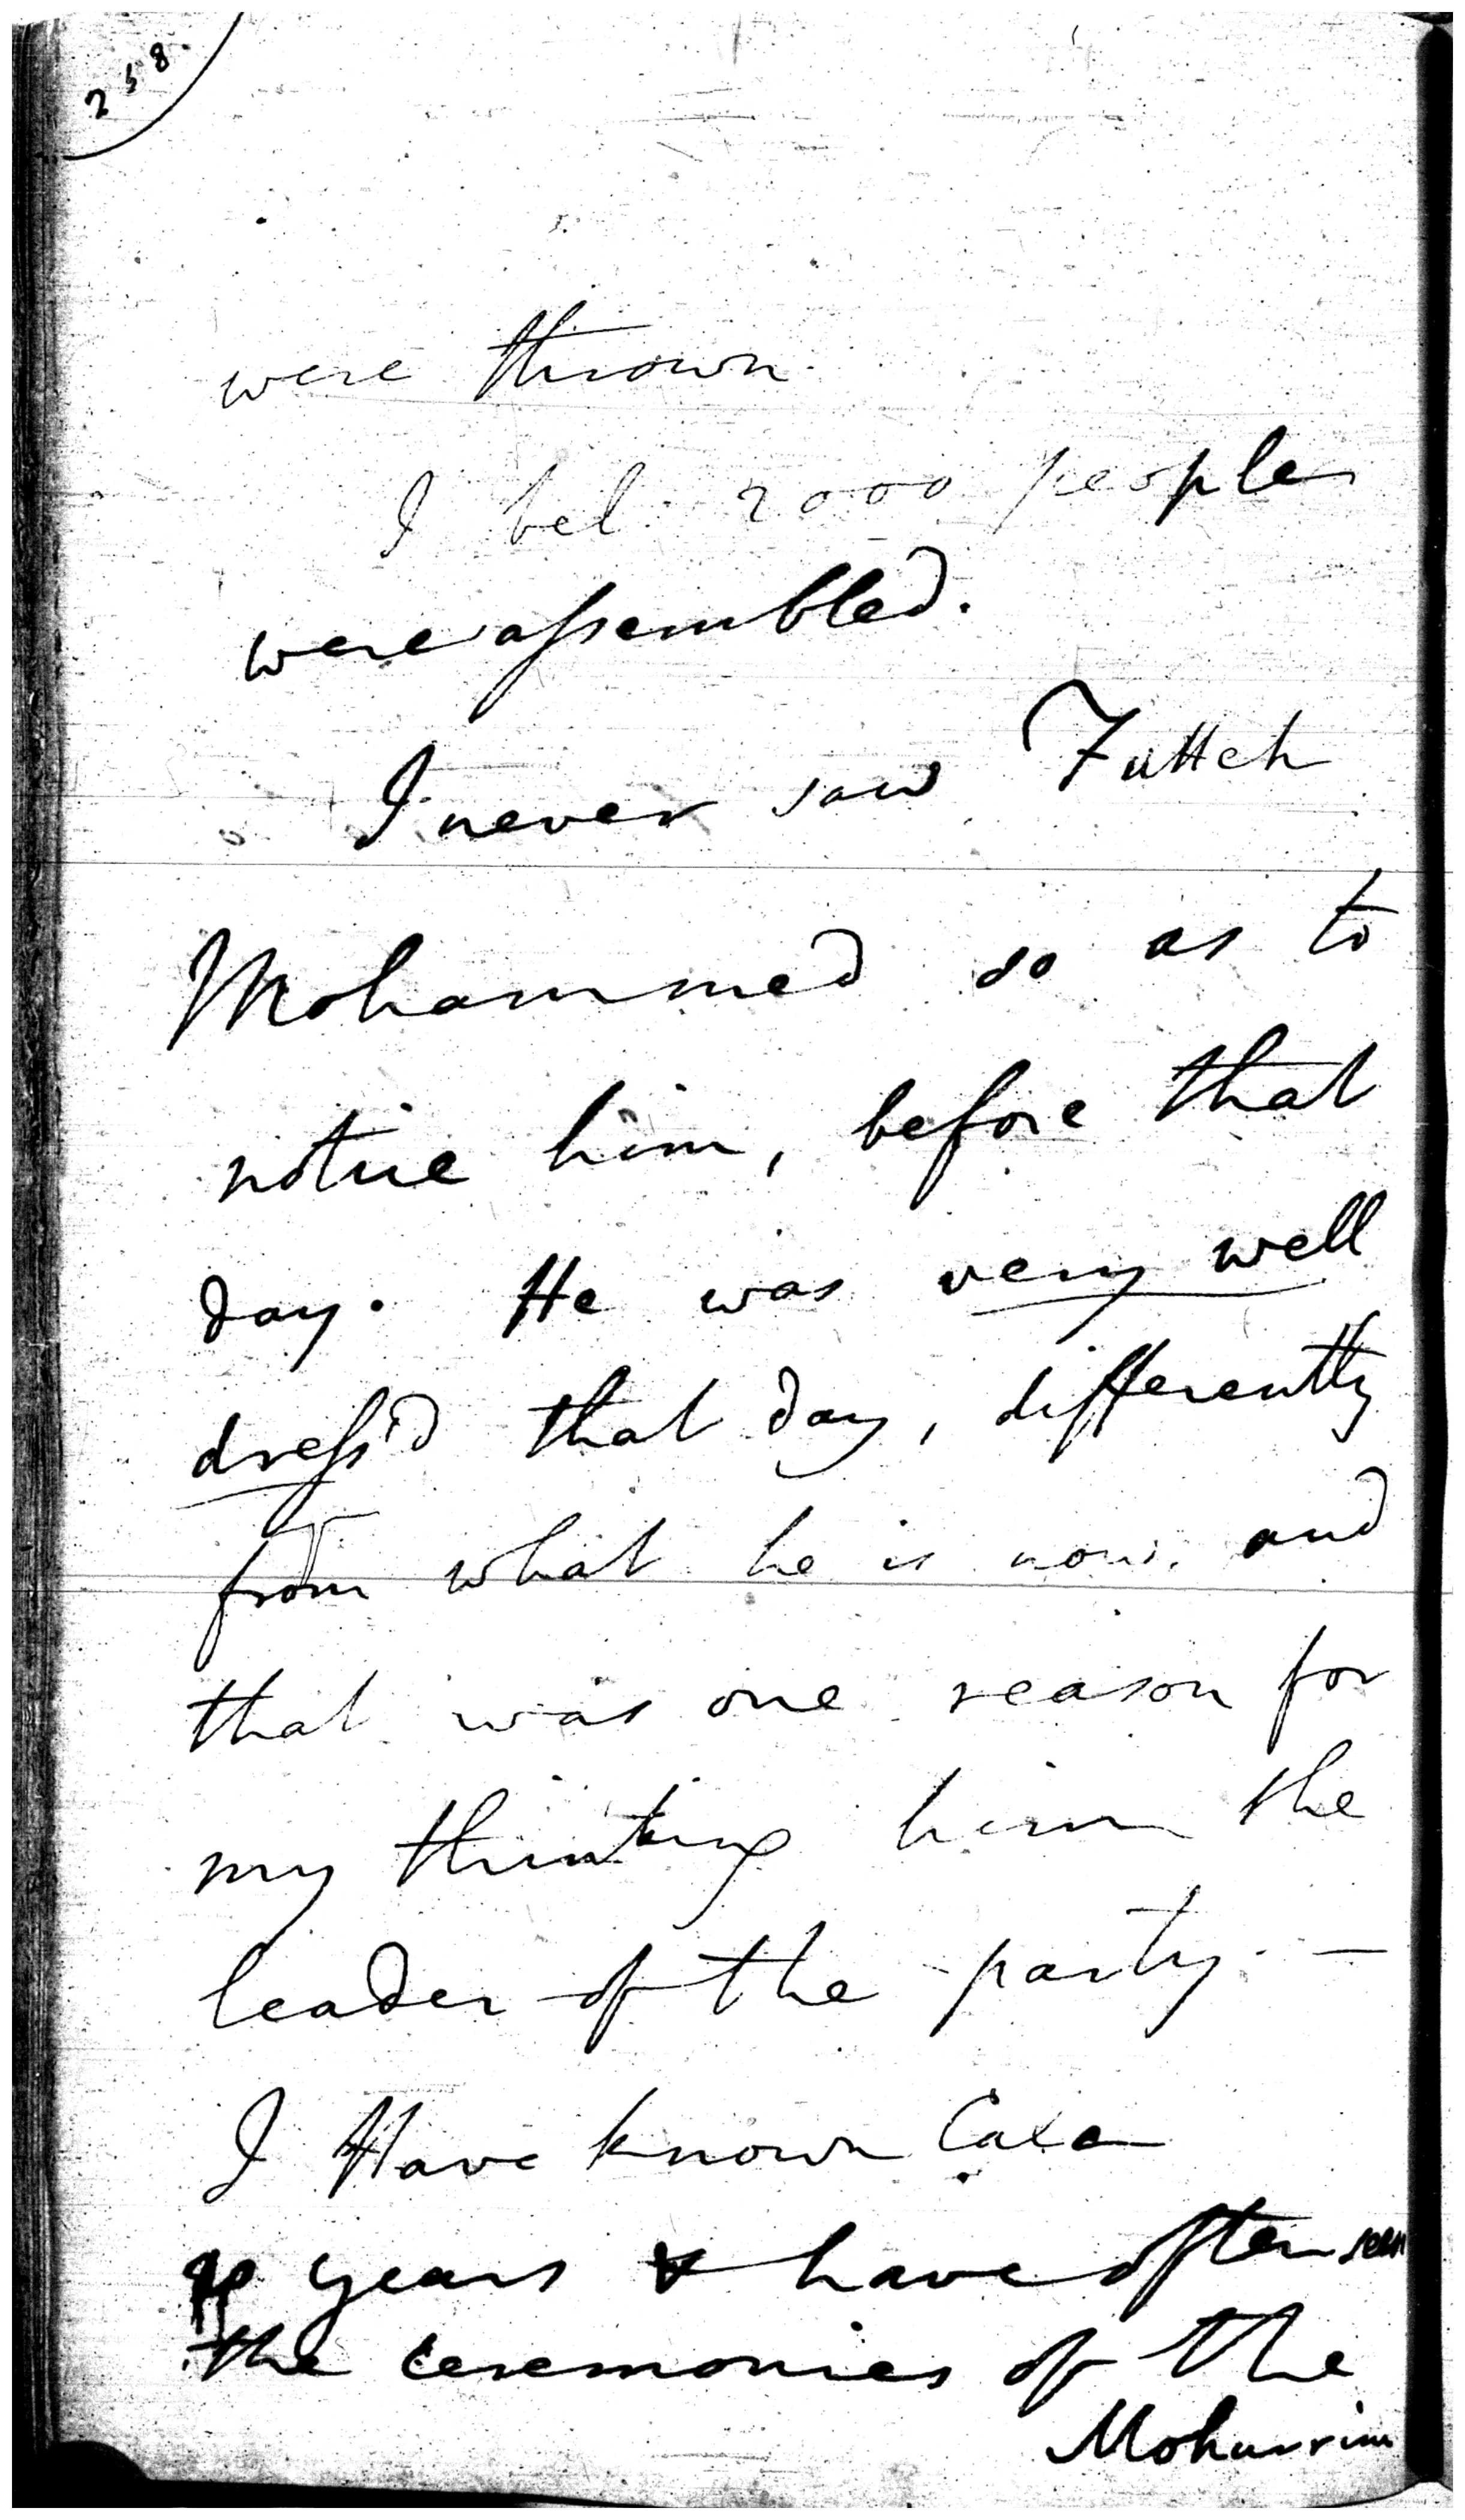 258.
were thrown.
I bel. 2000 people
were assembled.
I never saw Futteh
Mohammed so as to
notice him, before that
day. He was very well
dress'd that day, differently
from what he is now. and
that was one reason for
my thinking him the
leader of the party. —
I Have known Cala
years & have often seen
the ceremonies of the
Mohurrim